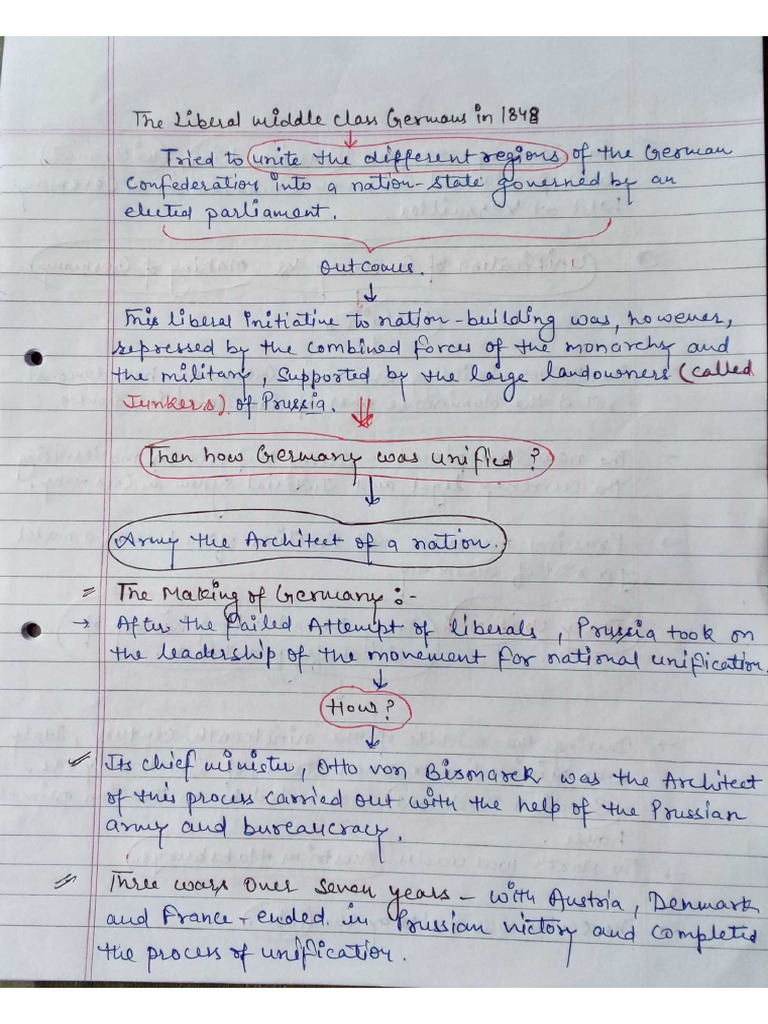 The Liberal middle class Germans in 1848
Tried to unite the different regions of the German
Confederation into a nation-state governed by an
elected parliament.
Outcome.
This liberal initiative to nation-building was, however,
repressed by the combined forces of the monarchy and
the military, supported by the large landowners (called
Junkers) of Prussia.
Then how Germany was unified?
Army the Architect of a nation.
= The Making of Germany :-
→ After the failed Attempt of liberals, Prussia took on
the leadership of the movement for national unification.
How?
Its chief minister, Otto von Bismarck was the Architect
of this process carried out with the help of the Prussian
army and bureaucracy.
Three wars over seven years - with Austria, Denmark
and France - ended in Prussian victory and completed
the process of unification.